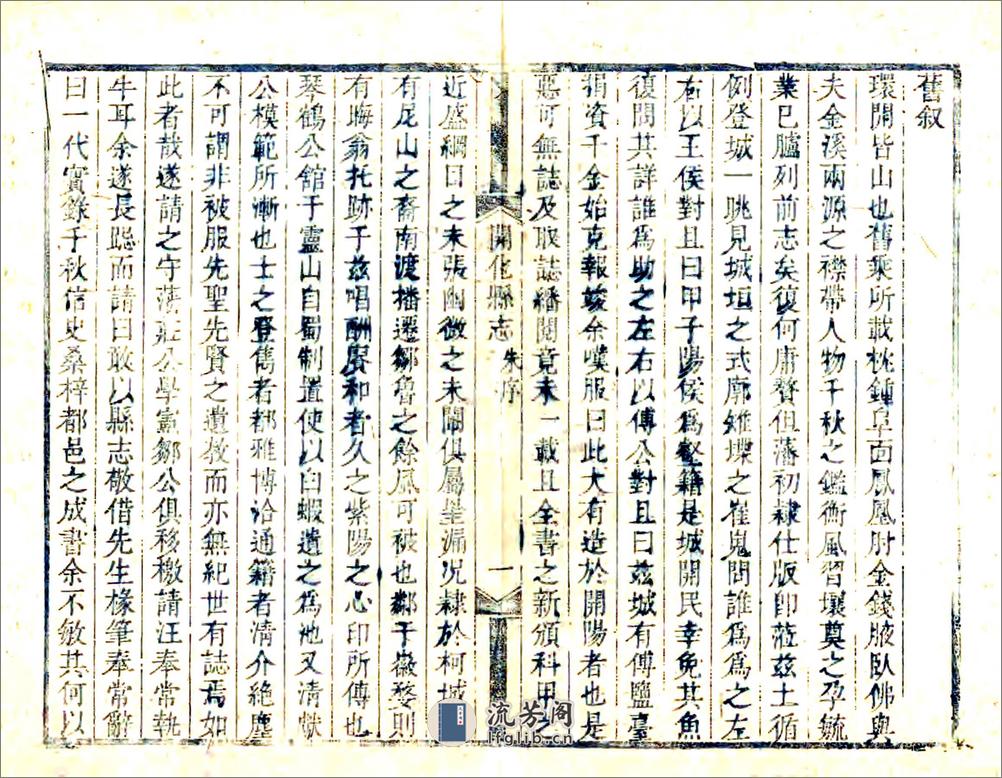 舊叙
環開皆山也舊乘所載枕鍾阜面鳳凰肘金錢腋臥佛與
夫金溪兩源之襟帶人物千秋之鑑衡風習壤奠之孕毓
業已臚列前志矣復何庸贅但藩初隷仕版即蒞兹土循
例登城一眺見城垣之式廓雉堞之崔嵬問誰爲爲之左
右以王侯對且曰甲子陽侯爲壑籍是城開民幸免其魚
復問其詳誰爲助之左右以傅公對且曰兹城有傅鹽臺
捐資千金始克報竣余嘆服曰此大有造於開陽者也是
惡可無誌及取誌繙閱竟未一載且全書之新頒科甲之
開化縣志 朱序 一
近盛綱目之未張幽微之未闡俱屬罣漏况隷於柯城
有尼山之裔南渡播遷鄒魯之餘風可被也鄰于嶽婺則
有晦翁托跡于兹唱酬賡和者久之紫陽之心印所傳也
琴鶴公舘于靈山自蜀制置使以白蝦遺之爲池又清獻
公模範所漸也士之登雋者都雅博洽通籍者清介絶塵
不可謂非被服先聖先賢之遺敎而亦無紀世有誌焉如
此者哉遂請之守蒲莊公學憲鄒公俱移檄請汪奉常執
牛耳余遂長跽而請曰敢以縣志敬借先生椽筆奉常辭
曰一代實錄千秋信史桑梓都邑之成書余不敏其何以
流芳阁
lfglib.cn